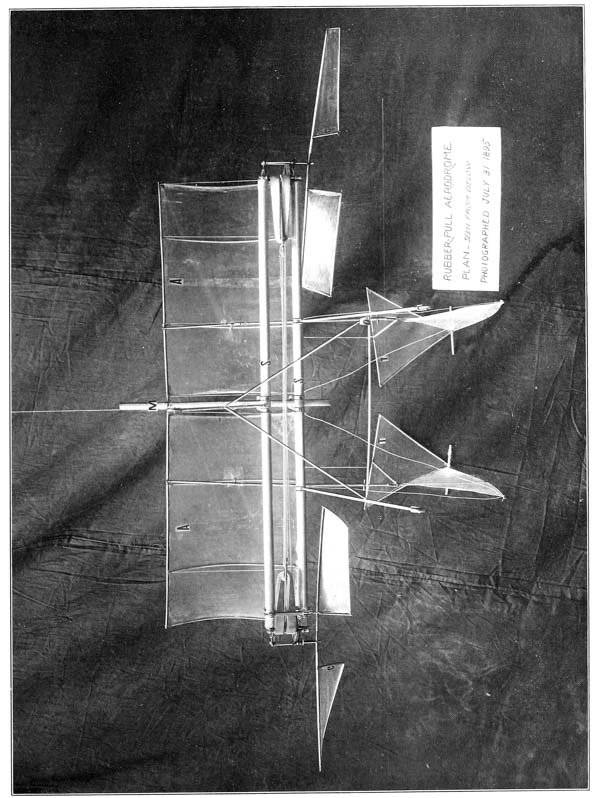 RUBBER-PULL AERODROME.
PLAN - SEEN FROM BELOW
PHOTOGRAPHED JULY 31 1895
A
M
S
S
A
C